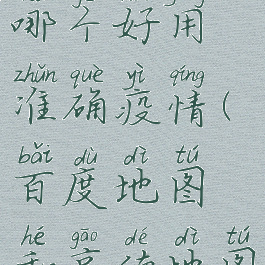 哪个好用
zhǔn què yì qíng
准确疫情(
bǎi dù dì tú
百度地图
hé gāo dé dì tú
和高德地图